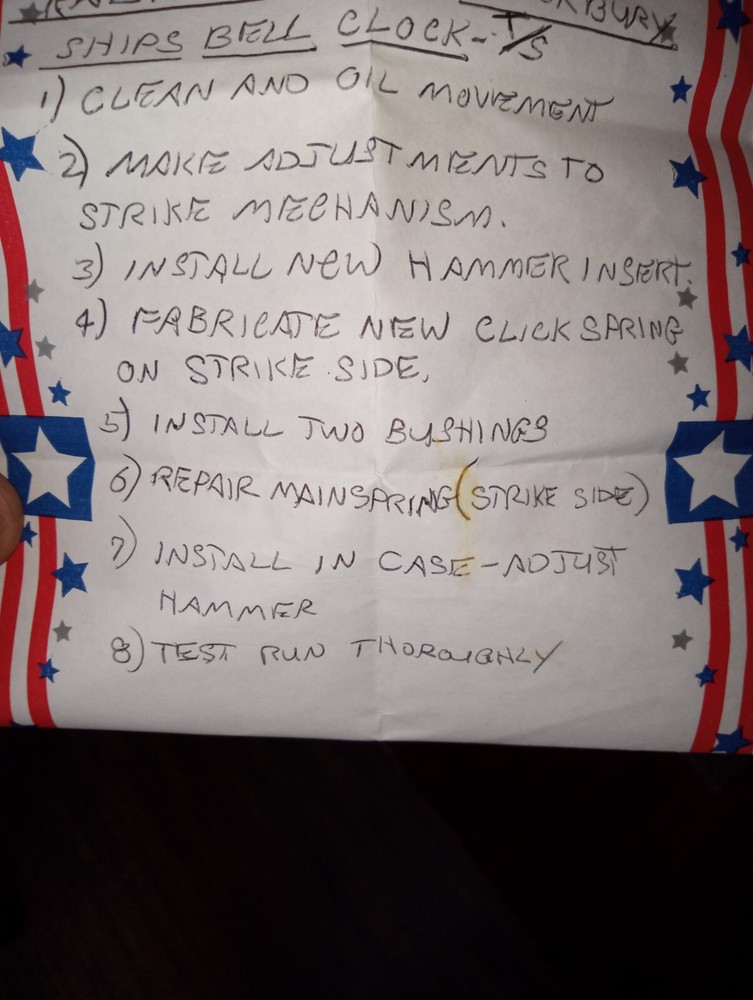 SHIPS BELL CLOCK - T/S
1) CLEAN AND OIL MOVEMENT
2) MAKE ADJUSTMENTS TO
STRIKE MECHANISM.
3) INSTALL NEW HAMMER INSERT.
4) FABRICATE NEW CLICK SPRING
ON STRIKE SIDE,
5) INSTALL TWO BUSHINGS
6) REPAIR MAINSPRING (STRIKE SIDE)
7) INSTALL IN CASE - ADJUST
HAMMER
8) TEST RUN THOROUGHLY